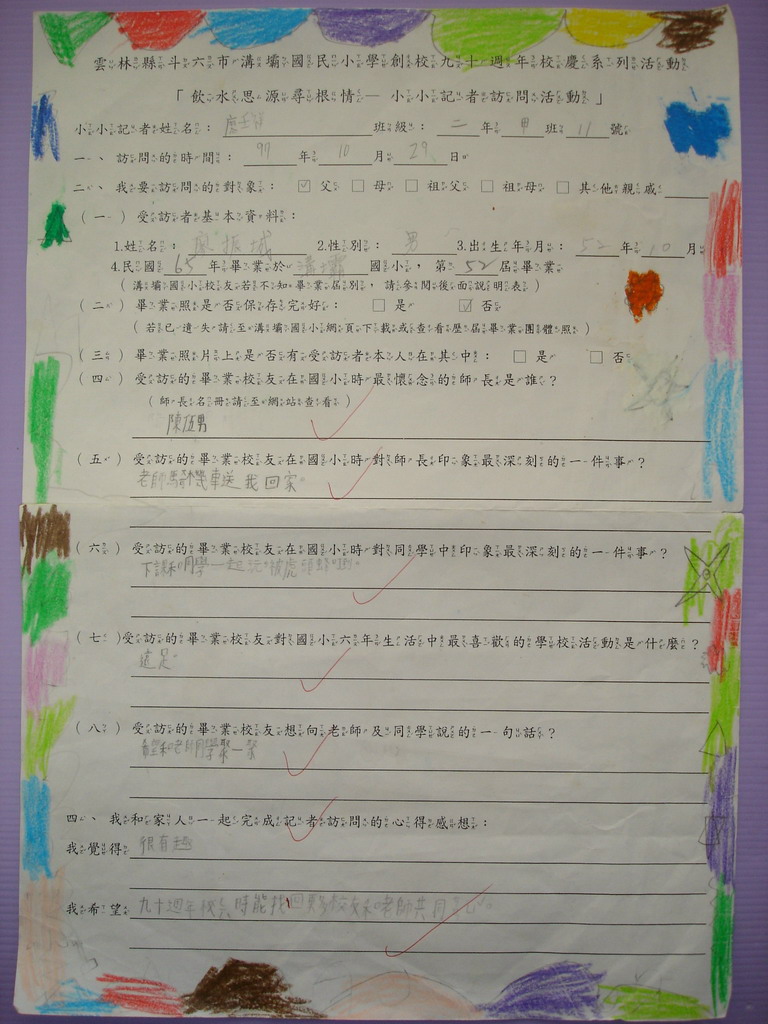 雲林縣斗六市溝壩國民小學創校九十週年校慶系列活動
「飲水思源尋根情—小小記者訪問活動」
小小記者姓名： 班級：二年甲班11號
一、訪問的時間：97年10月29日
二、我要訪問的對象：☑父□母□祖父□祖母□其他親戚
（一）受訪者基本資料：
1.姓名：廖振城 2.性別：男 3.出生年月：52年10月
4.民國65年畢業於溝壩國小，第52屆畢業
（溝壩國小校友若不知畢業屆別，請參閱後面說明表）
（二）畢業照是否保存完好：□是☑否
（若已遺失請至溝壩國小網頁下載或查看歷屆畢業團體照）
（三）畢業照片上是否有受訪者本人在其中：□是 □否
（四）受訪的畢業校友在國小時最懷念的師長是誰？
（師長名冊請至網站查看）
陳 男
（五）受訪的畢業校友在國小時對師長印象最深刻的一件事？
老師騎機車送我回家。
（六）受訪的畢業校友在國小時對同學中印象最深刻的一件事？
下課和同學一起玩被虎頭蜂叮。
（七）受訪的畢業校友對國小六年生活中最喜歡的學校活動是什麼？
遠足
（八）受訪的畢業校友想向老師及同學說的一句話？
希望和老師同學聚一聚
四、我和家人一起完成記者訪問的心得感想：
我覺得 很有趣
我希望 九十週年校慶時能找回 校友和老師共同